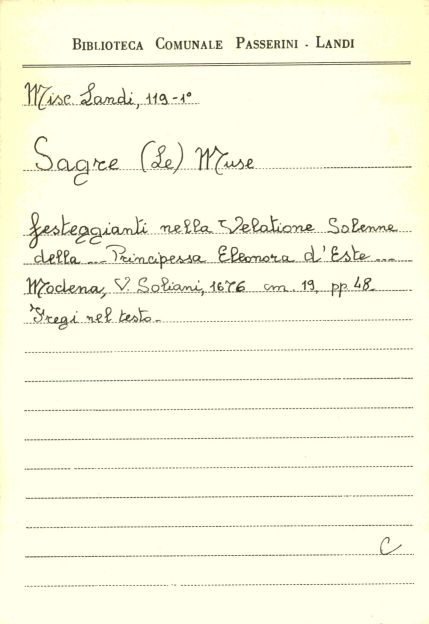 BIBLIOTECA COMUNALE PASSERINI - LANDI
Misc Landi, 119-1°
Sagre (Le) Muse
festeggianti nella Velatione Solenne
della ... Principessa Eleonora d'Este ...
Modena, V. Soliani, 1676 cm. 19, pp. 48.
Fregi nel testo.
C